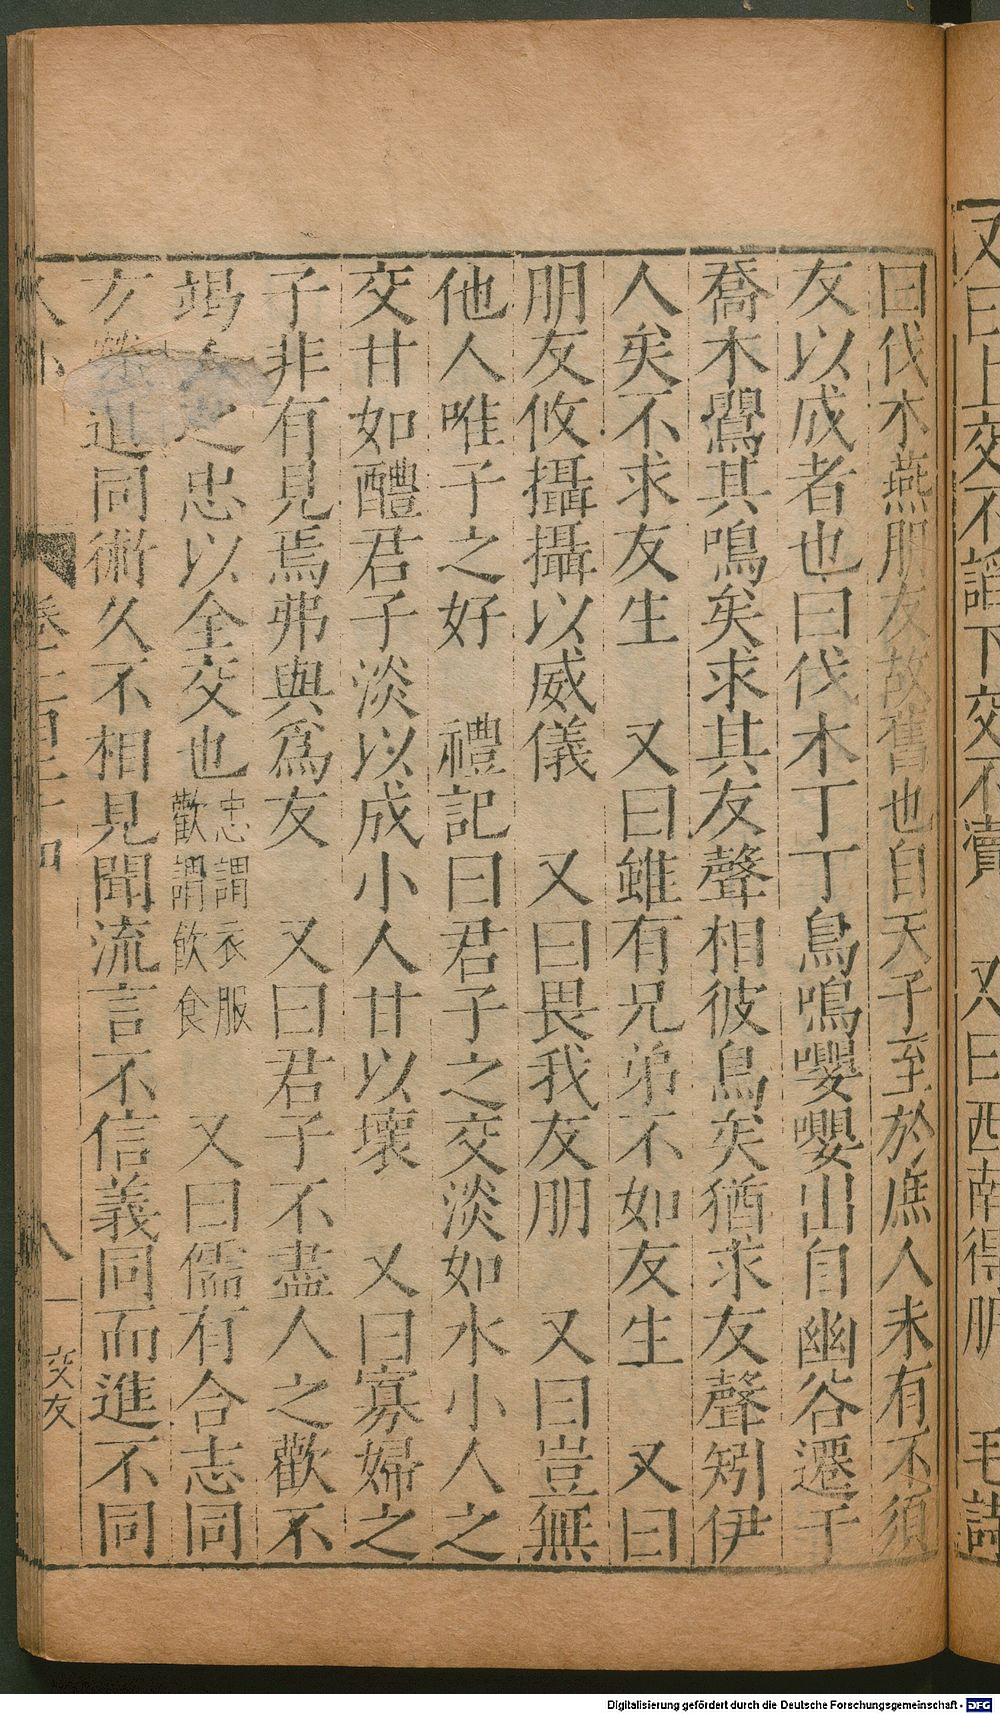 又曰上交不諂下交不瀆　又曰西南得朋　毛詩
曰伐木燕朋友故舊也自天子至於庶人未有不須
友以成者也曰伐木丁丁鳥鳴嚶嚶出自幽谷遷于
喬木鸎其鳴矣求其友聲相彼鳥矣猶求友聲矧伊
人矣不求友生　又曰雖有兄弟不如友生　又曰
朋友攸攝攝以威儀　又曰畏我友朋　又曰豈無
他人唯子之好　禮記曰君子之交淡如水小人之
交甘如醴君子淡以成小人甘以壞　又曰寡婦之
子非有見焉弗與爲友　又曰君子不盡人之歡不
竭人之忠以全交也忠謂衣服歡謂飲食　又曰儒有合志同
方道同術久不相見聞流言不信義同而進不同
卷
八
一
交友
Digitalisierung gefördert durch die Deutsche Forschungsgemeinschaft - DFG